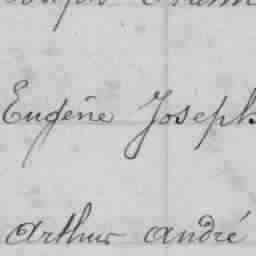 Eugène Joseph
Arthur André